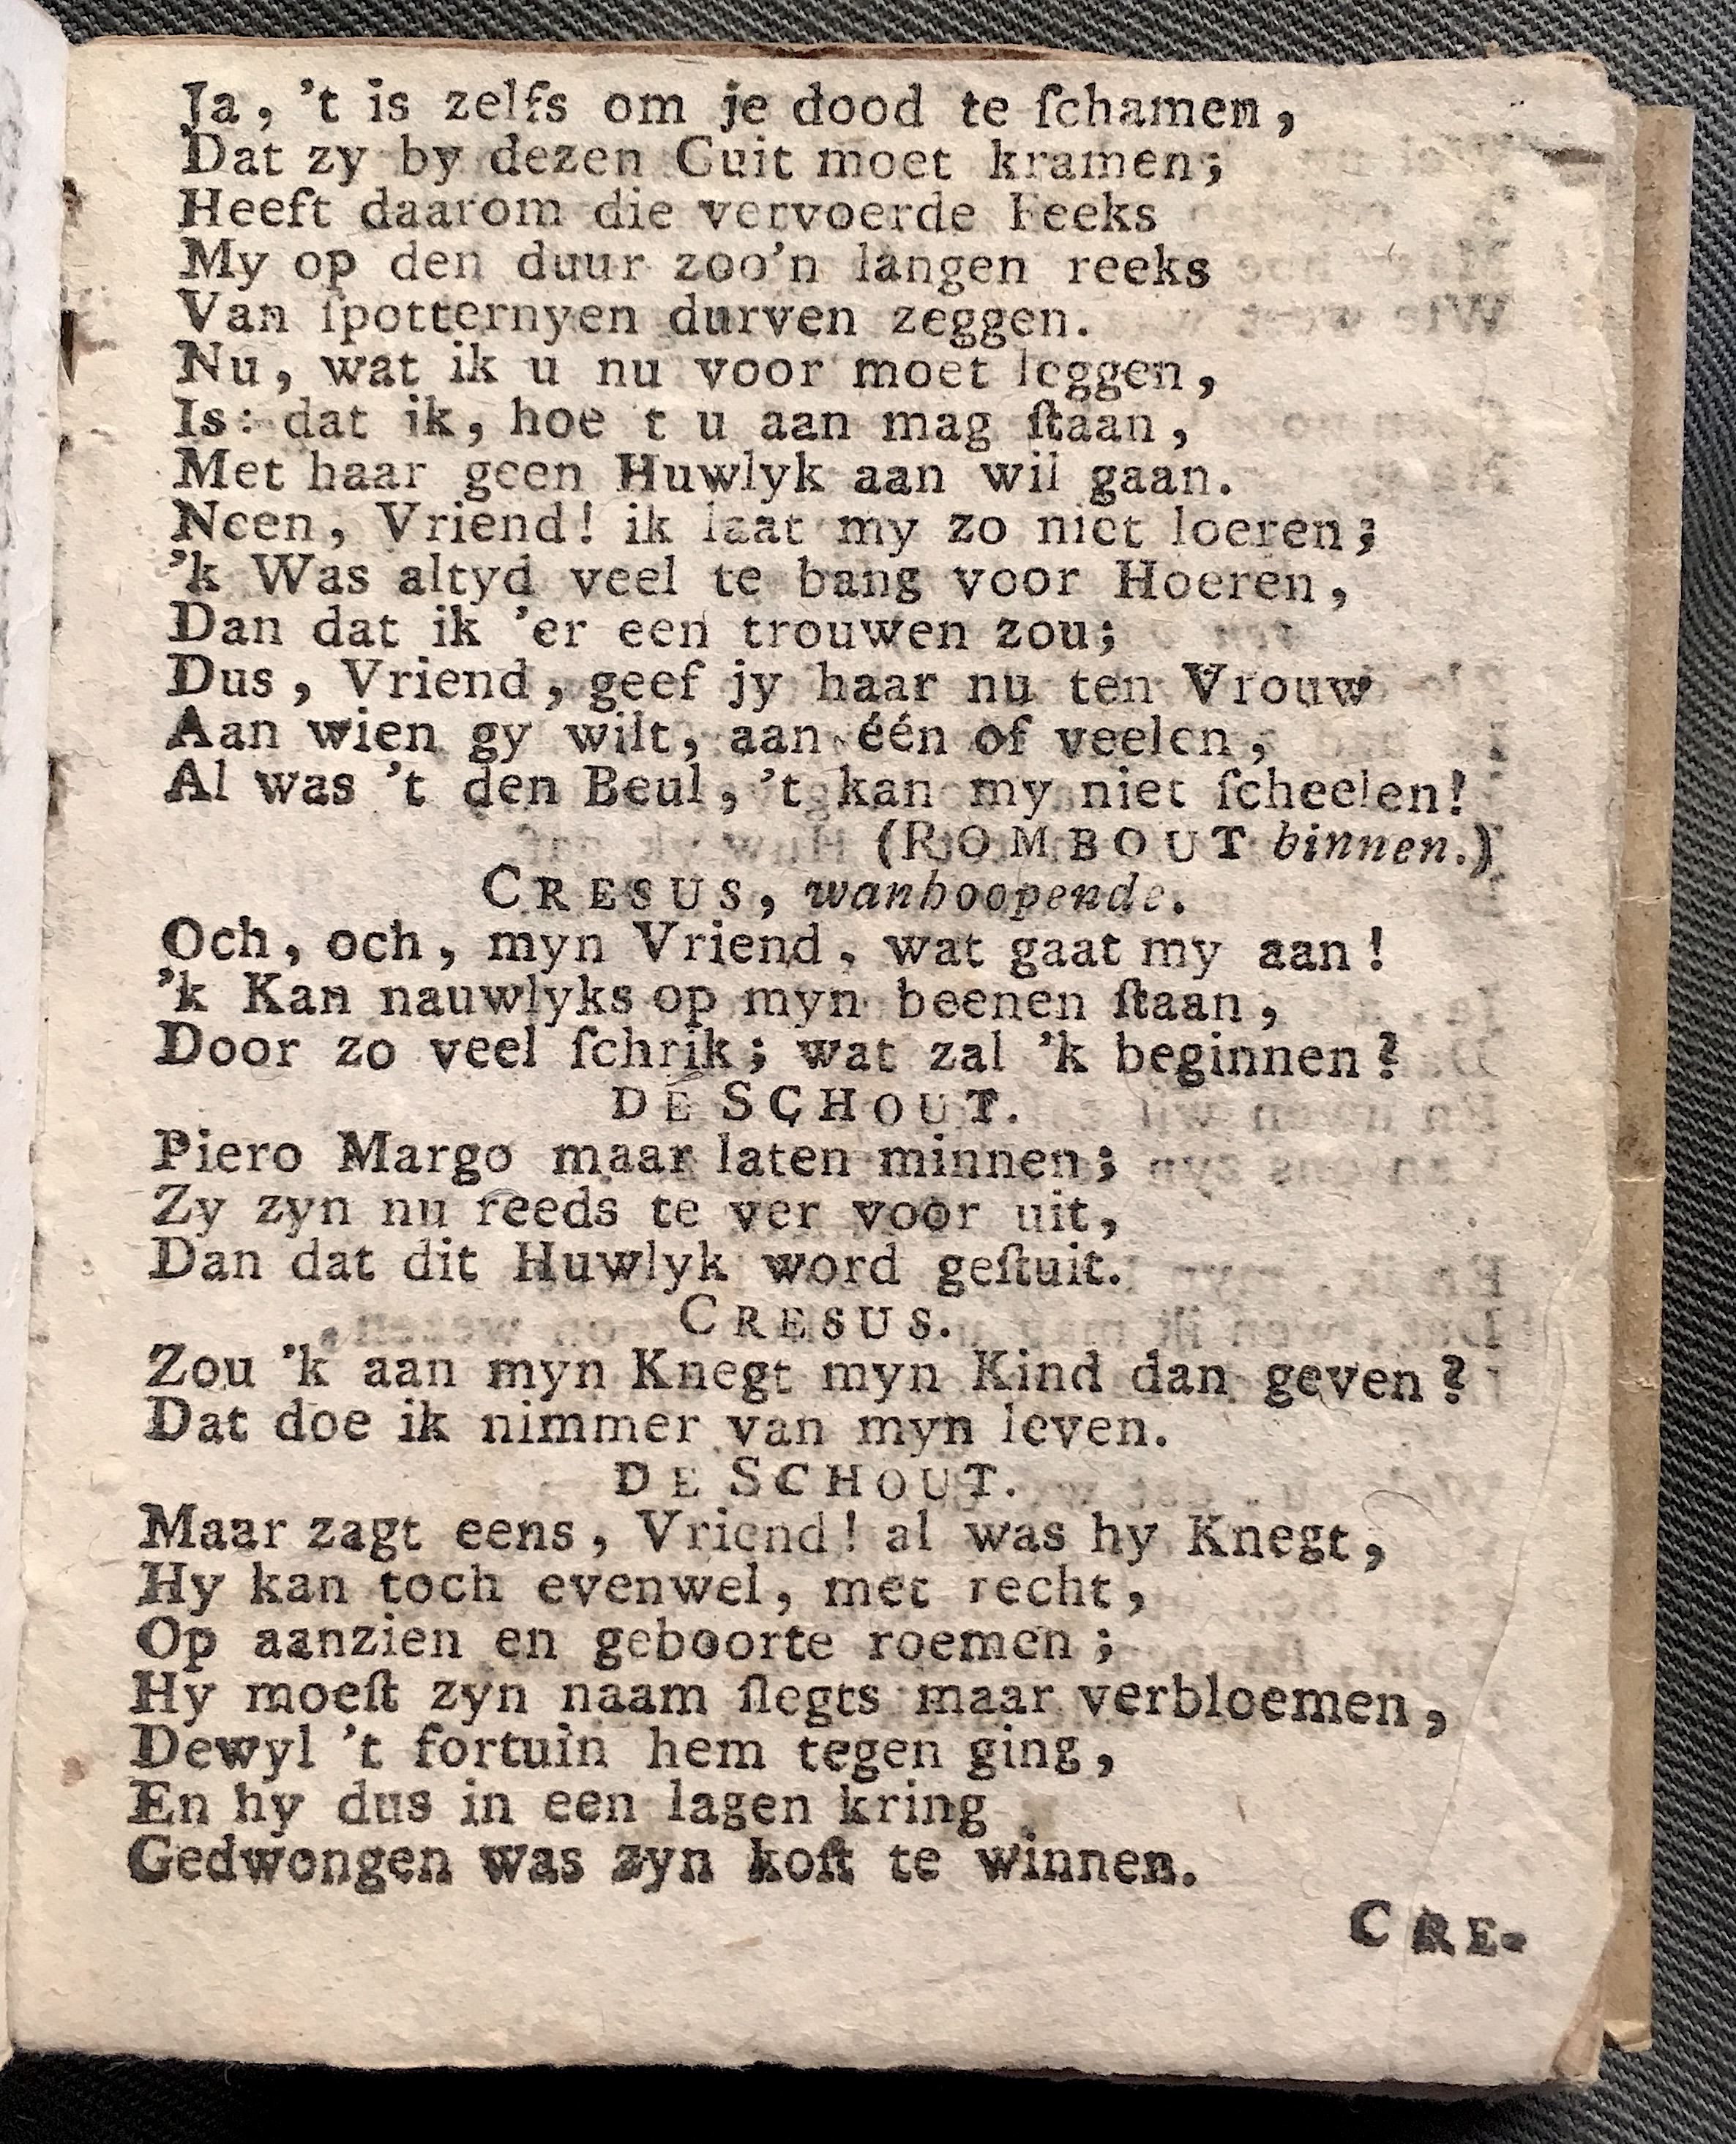 Ja, 't is zelfs om je dood te ſchamen,
Dat zy by dezen Guit moet kramen;
Heeft daarom die vervoerde Feeks
My op den duur zoo'n langen reeks
Van ſpotternyen durven zeggen.
Nu, wat ik u nu voor moet leggen,
Is: dat ik, hoe t u aan mag ſtaan,
Met haar geen Huwlyk aan wil gaan.
Neen, Vriend! ik laat my zo niet loeren;
'k Was altyd veel te bang voor Hoeren,
Dan dat ik 'er een trouwen zou;
Dus, Vriend, geef jy haar nu ten Vrouw
Aan wien gy wilt, aan één of veelen,
Al was 't den Beul, 't kan my niet ſcheelen!
(ROMBOUT binnen.)
CRESUS, wanhoopende.
Och, och, myn Vriend, wat gaat my aan!
'k Kan nauwlyks op myn beenen ſtaan,
Door zo veel ſchrik; wat zal 'k beginnen?
DE SCHOUT.
Piero Margo maar laten minnen;
Zy zyn nu reeds te ver voor uit,
Dan dat dit Huwlyk word geſtuit.
CRESUS.
Zou 'k aan myn Knegt myn Kind dan geven?
Dat doe ik nimmer van myn leven.
DE SCHOUT.
Maar zagt eens, Vriend! al was hy Knegt,
Hy kan toch evenwel, met recht,
Op aanzien en geboorte roemen;
Hy moeſt zyn naam ſlegts maar verbloemen,
Dewyl 't fortuin hem tegen ging,
En hy dus in een lagen kring
Gedwongen was zyn koſt te winnen.
CRE-